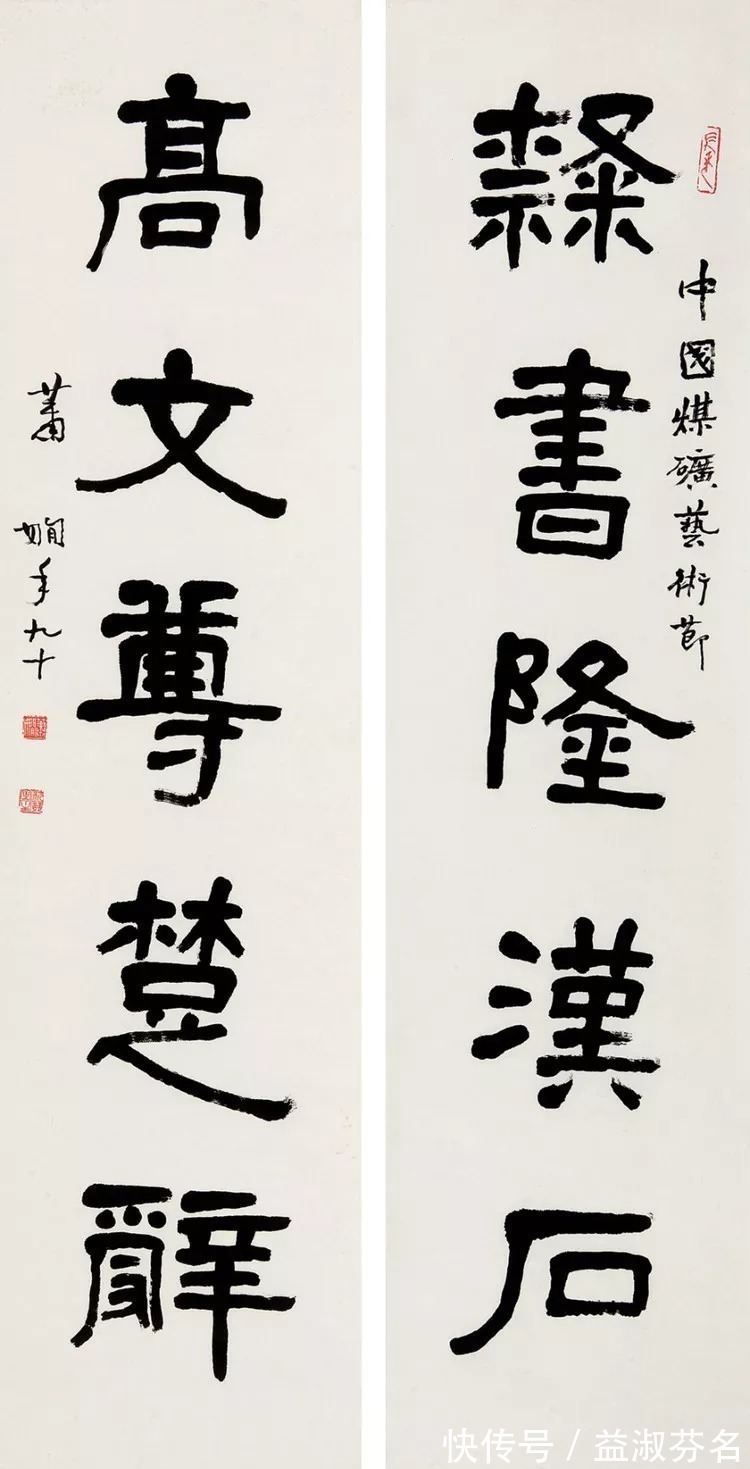 隸書隆漢石
中國煤礦藝術節
高文尊楚辭
蕭嫻年九十
快传号 / 益淑芬名